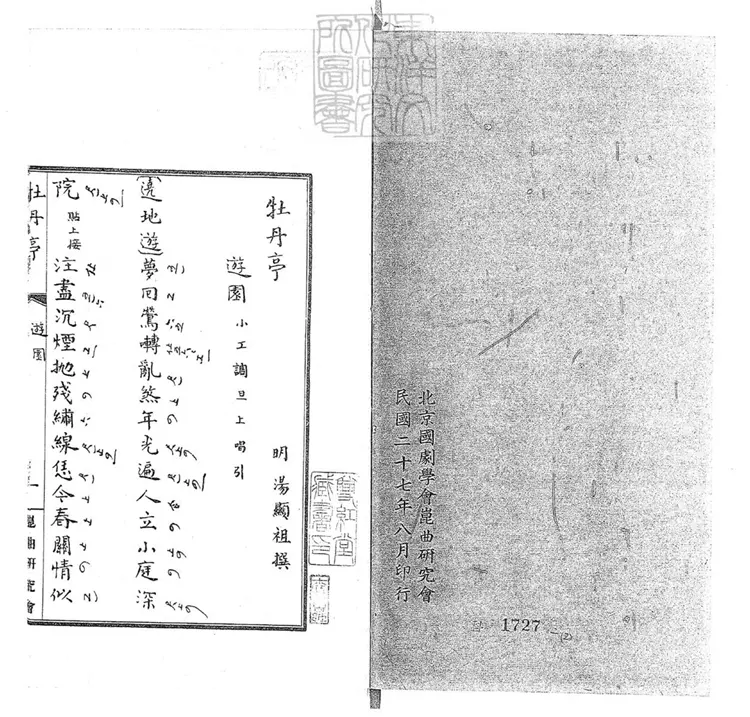 東洋文
化研究
所圖書
北京國劇學會崑曲研究會
民國二十七年八月印行
1727
牡丹亭 明湯顯祖撰
遊園 小工調旦上唱引
遶地遊 夢回鶯轉亂煞年光遍人立小庭深
院 貼上接 注盡沉煙抛殘繡線恁今春關情似
牡丹亭 遊園 崑曲研究會
雙紅堂
藏書印